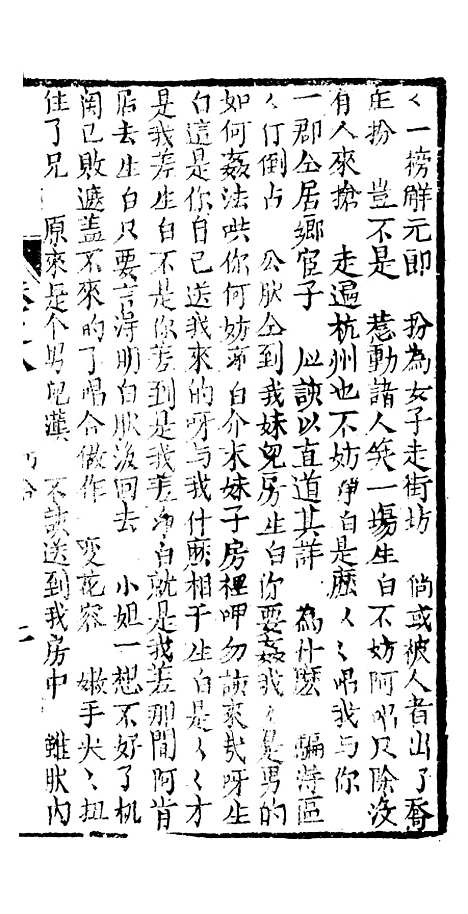 く一榜解元郎　扮為女子走街坊　倘或被人看出了喬
庄扮　豈不是　惹動諸人笑一場生白不妨阿唱只除没
有人來搶　走遍杭州也不妨净白是麽くく唱我与你
一郡仝居鄉宦子　応該以直道其詳　為什麽　騙得區
く仃倒占　公肰仝到我妹兒房生白你要姦我くく是男的
如何姦法哄你何妨净白介末妹子房裡呷勿該來哉呀生
白這是你自己送我來的呀与我什麽相干生白是くく才
是我差生白不是你差到是我差净白就是我差那間阿肯
居去生白只要言得明白肰没回去　小姐一想不好了机
関已敗遮盖不來的了唱合做作　変花容　嫩手尖く扭
住了兄　原來是个男兒漢　不該送到我房中　雖肰内